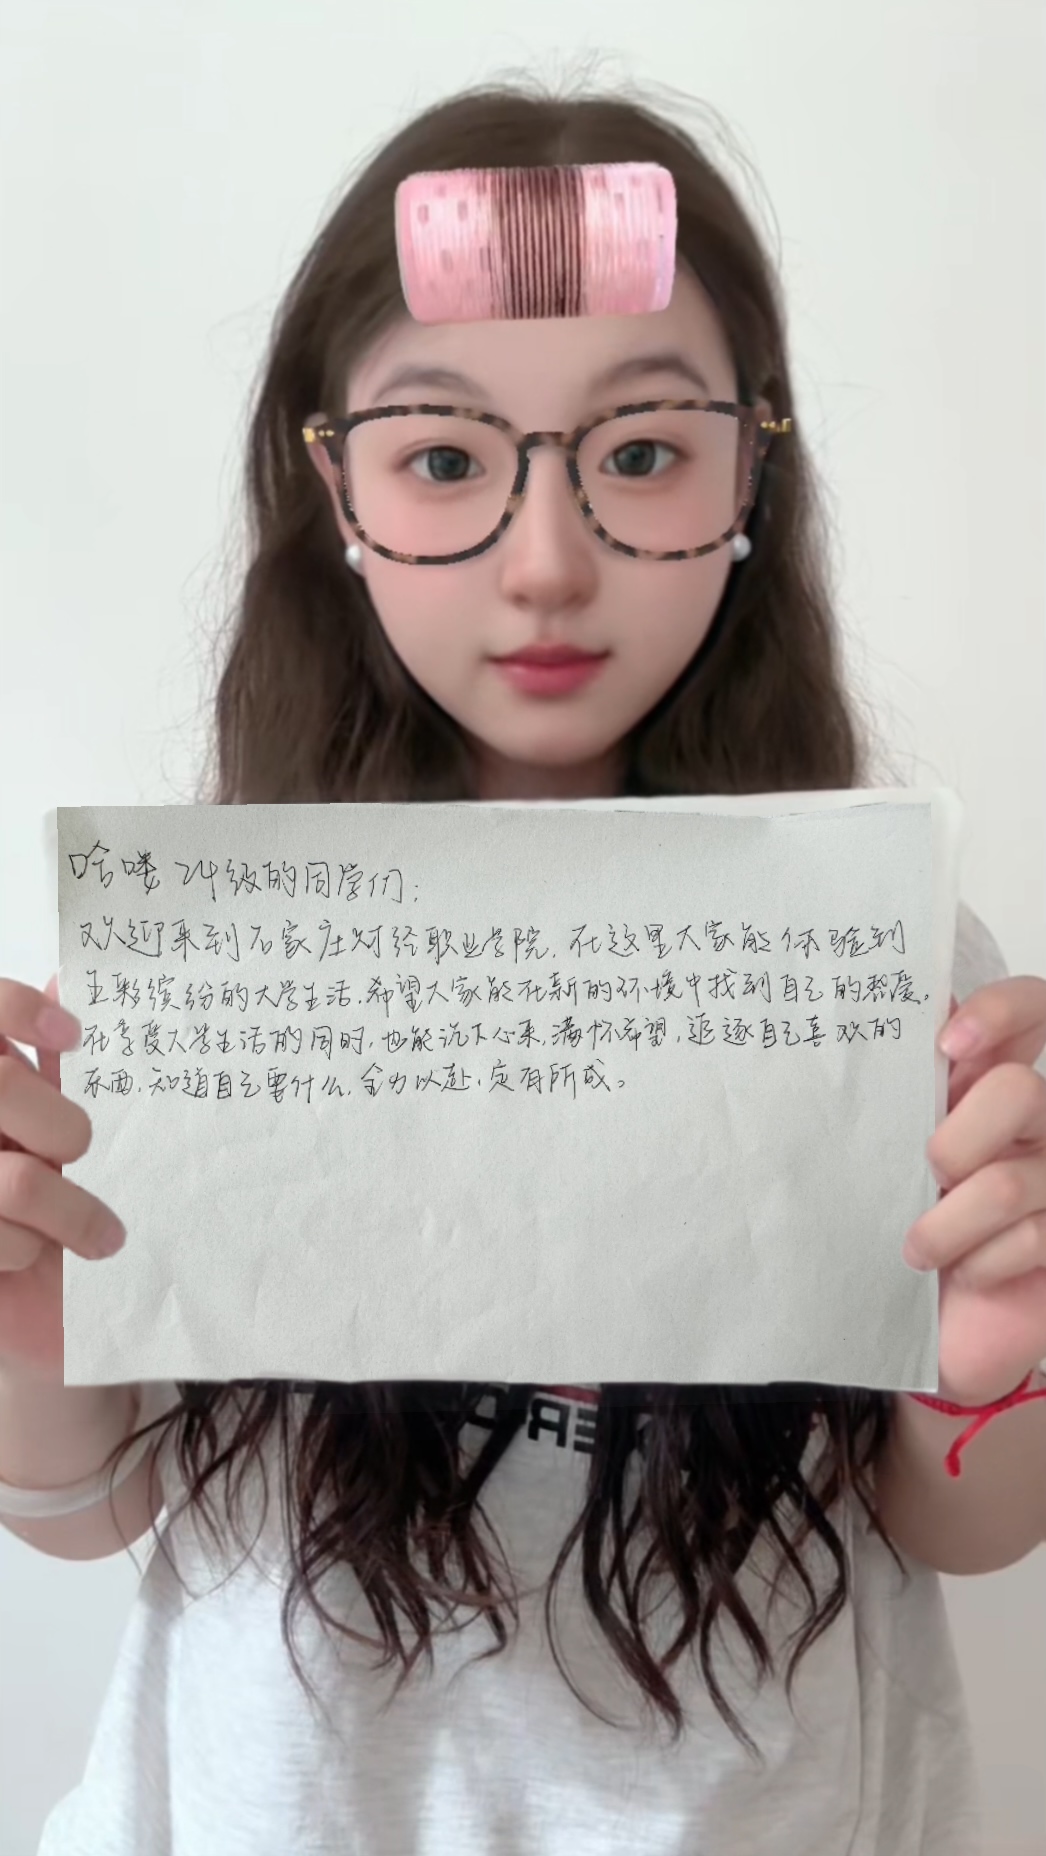 哈喽 24级的同学们：
欢迎来到石家庄财经职业学院，在这里大家能体验到
五彩缤纷的大学生活，希望大家能在新的环境中找到自己的热爱。
在享受大学生活的同时，也能沉下心来，满怀希望，追逐自己喜欢的
东西，知道自己要什么，全力以赴，定有所成。